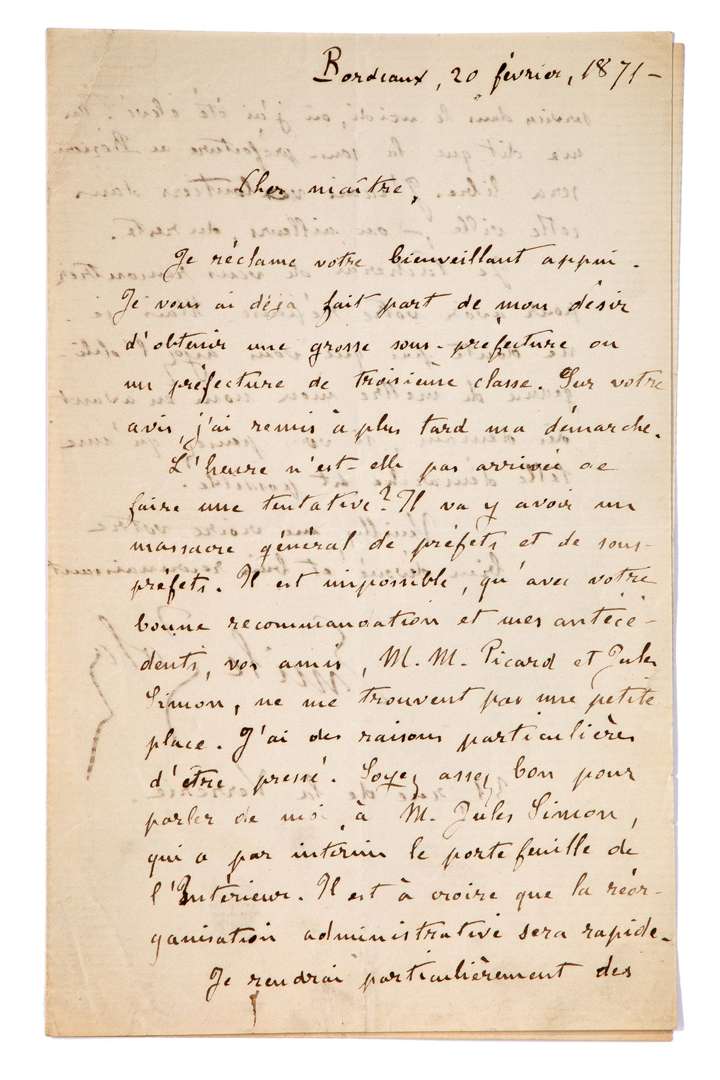 Bordeaux, 20 février, 1871 –
Cher maître,
Je réclame votre bienveillant appui.
Je vous ai déjà fait part de mon désir
d'obtenir une grosse sous-préfecture ou
un préfecture de troisième classe. Sur votre
avis, j'ai remis à plus tard ma démarche.
L'heure n'est-elle pas arrivée de
faire une tentative? Il va y avoir un
massacre général de préfets et de sous-
préfets. Il est impossible, qu'avec votre
bonne recommandation et mes antécé-
dents, vos amis, M. M. Picard et Jules
Simon, ne me trouvent pas une petite
place. J'ai des raisons particulières
d'être pressé. Soyez assez bon pour
parler de moi à M. Jules Simon,
qui a par interim le portefeuille de
l'Intérieur. Il est à croire que la réor-
ganisation administrative sera rapide.
Je rendrai particulièrement des